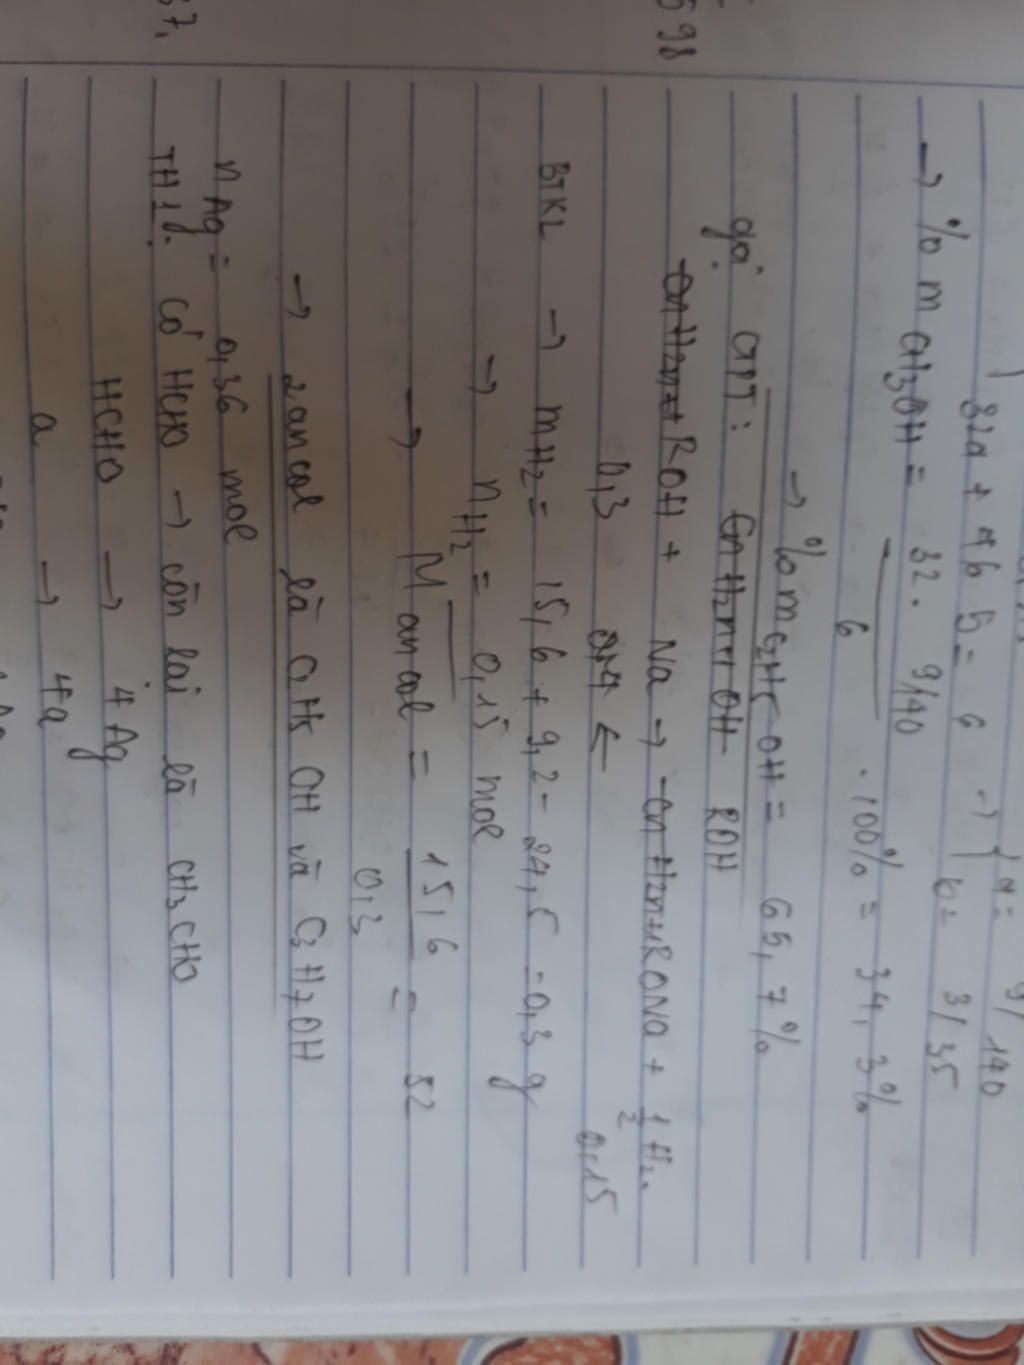 32a + 46b = 6 → { a = 9/140
b = 3/35
→ % m CH3OH = 32. 9/140
6 . 100% = 34,3%
→ % m C2H5OH = 65,7%
gọi CTPT: CnH2n+1OH ROH
CnH2n+1 ROH + Na → CnH2n+1 RONa + 1/2 H2
0,3 0,4 ← 0,15
BTKL → mH2 = 15,6 + 9,2 - 24,5 = 0,3 g
→ nH2 = 0,15 mol
→ M ancol = 15,6 = 52
0,3
→ 2 ancol là C2H5OH và C3H7OH
nAg = 0,36 mol
TH1: Có HCHO → còn lại là CH3CHO
HCHO → 4Ag
a → 4a
98
37.